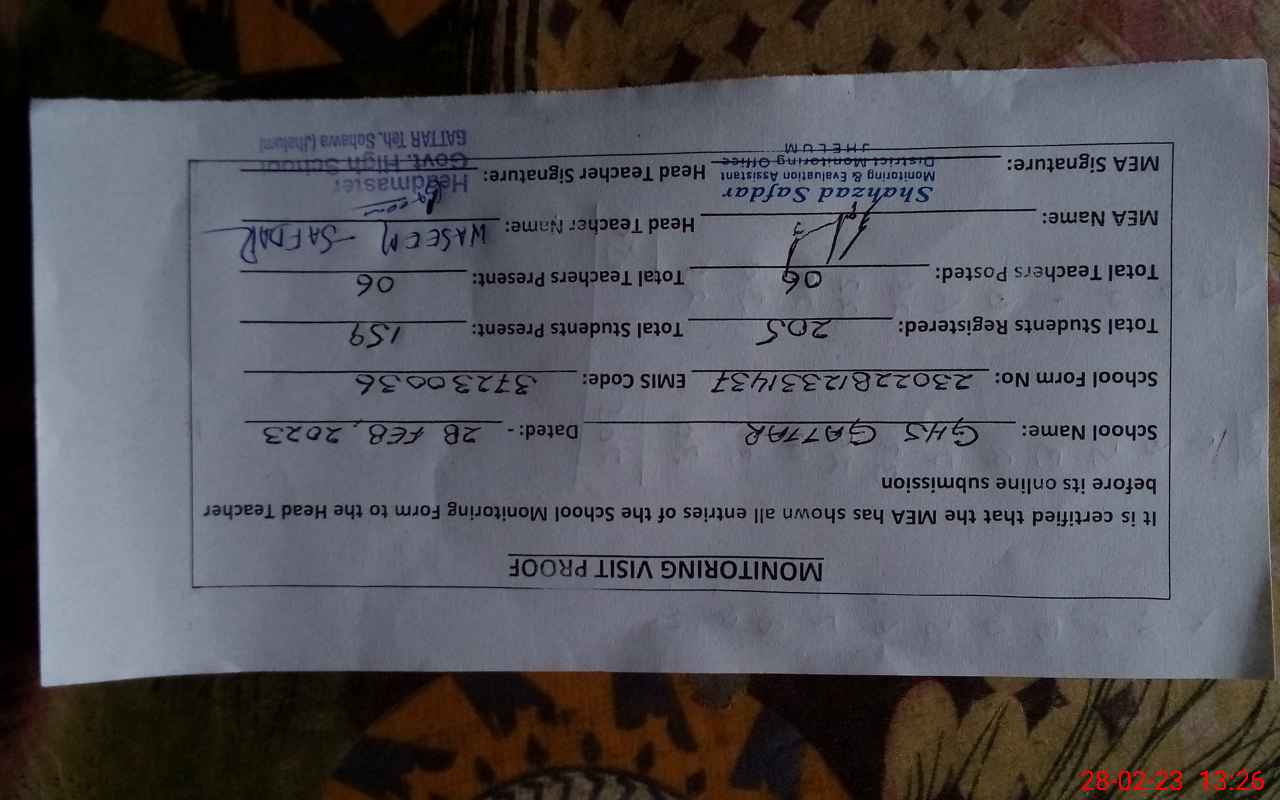 MONITORING VISIT PROOF
It is certified that the MEA has shown all entries of the School Monitoring Form to the Head Teacher
before its online submission
School Name: GHS GATTAR Dated: - 28 FEB, 2023
School Form No: 23022812331437 EMIS Code: 37230036
Total Students Registered: 205 Total Students Present: 159
Total Teachers Posted: 06 Total Teachers Present: 06
MEA Name: Head Teacher Name: WASEEM SAFDAR
Shahzad Safdar
Monitoring & Evaluation Assistant
District Monitoring Office
JHELUM
MEA Signature: Head Teacher Signature:
Headmaster
Govt. High School
GATTAR Teh. Sohawa (Jhelum)
28-02-23 13:26